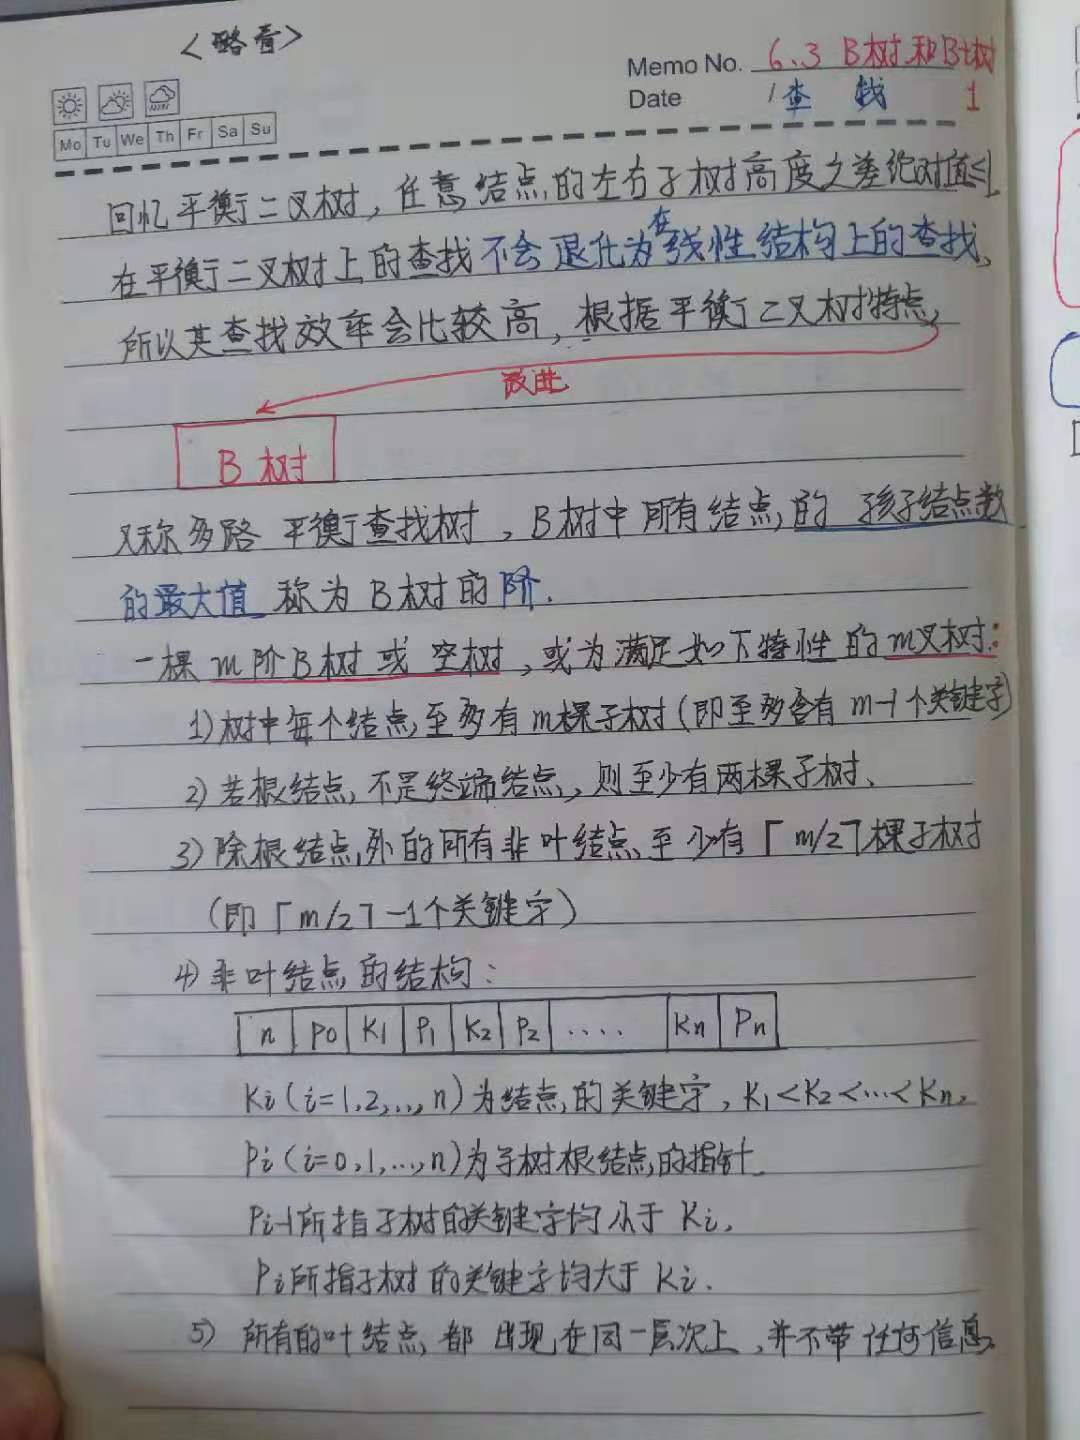 <略看>
Memo No. 6.3 B树和B+树
Date / 查 找 1
Mo Tu We Th Fr Sa Su
回忆平衡二叉树，任意结点的左右子树高度之差绝对值≤1.
在平衡二叉树上的查找不会退化为在线性结构上的查找，
所以其查找效率会比较高，根据平衡二叉树特点，
改进
B 树
又称多路平衡查找树，B树中所有结点的 孩子结点数
的最大值 称为B树的阶.
一棵m阶B树或 空树，或为满足如下特性的m叉树：
1)树中每个结点至多有m棵子树(即至多含有m-1个关键字)
2)若根结点不是终端结点，则至少有两棵子树.
3)除根结点外的所有非叶结点至少有⌈m/2⌉棵子树
(即⌈m/2⌉-1个关键字)
4)非叶结点的结构：
n P0 K1 P1 K2 P2 .... Kn Pn
Ki(i=1,2,..,n)为结点的关键字，K1<K2<…<Kn,
Pi(i=0,1,...,n)为子树根结点的指针
Pi-1所指子树的关键字均小于Ki,
Pi所指子树的关键字均大于Ki.
5) 所有的叶结点都出现在同一层次上，并不带任何信息.